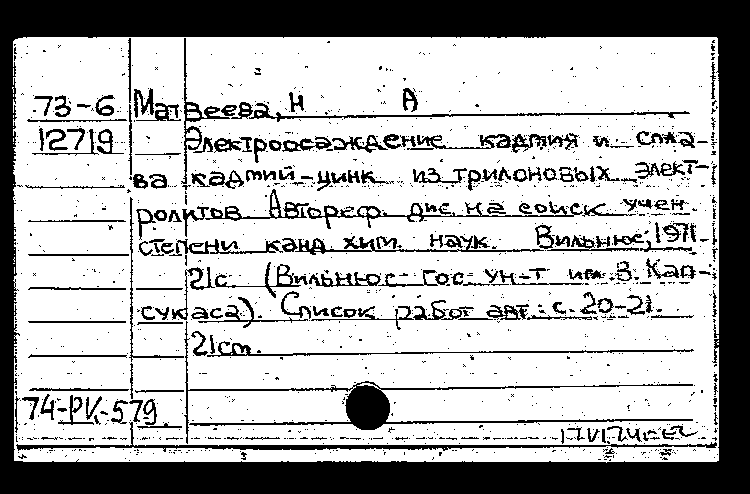 73-6 Матвеева, Н А
12719 Электроосаждение кадмия и спла-
ва кадмий-цинк из трилоновых элект-
ролитов Автореф. дис. на соиск учен.
степени канд. хим. наук. Вильнюс, 1971.
21с. (Вильнюс. гос. ун-т им. В. Кап-
сукаса). Список работ авт.: с. 20-21.
21ст.
74-РК-579